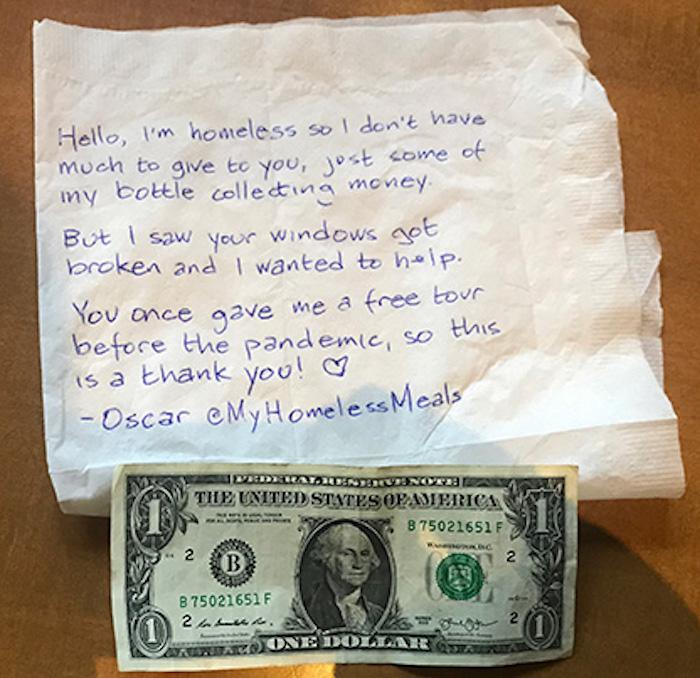 Hello, I'm homeless so I don't have
much to give to you, just some of
my bottle collecting money.
But I saw your windows got
broken and I wanted to help.
You once gave me a free tour
before the pandemic, so this
is a thank you! ♡
-Oscar @MyHomelessMeals
FEDERAL RESERVE NOTE
THE UNITED STATES OF AMERICA
THIS NOTE IS LEGAL TENDER
FOR ALL DEBTS, PUBLIC AND PRIVATE
B 75021651 F
WASHINGTON, D.C.
1
1
2
B
2
B 75021651 F
2
2
1
ONE DOLLAR
1